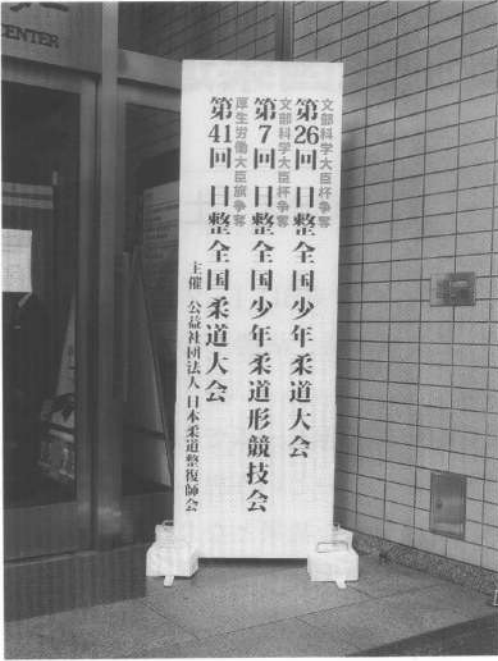 文部科学大臣杯争奪
第26回 日整全国少年柔道大会
文部科学大臣杯争奪
第7回 日整全国少年柔道形競技会
厚生労働大臣旗争奪
第41回 日整全国柔道大会
主催 公益社団法人 日本柔道整復師会
CENTER